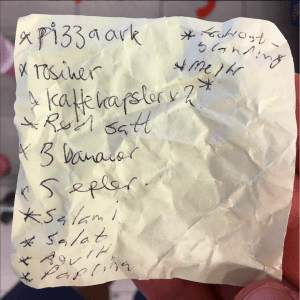 * pizzaark
* rosiner
* kaffekapsler x 2
* Rød saft
* 3 bananer
* 5 epler.
* Salami
* Salat
* Agurk
* Paprika
* Revet ost-
blanding
* Melk
*